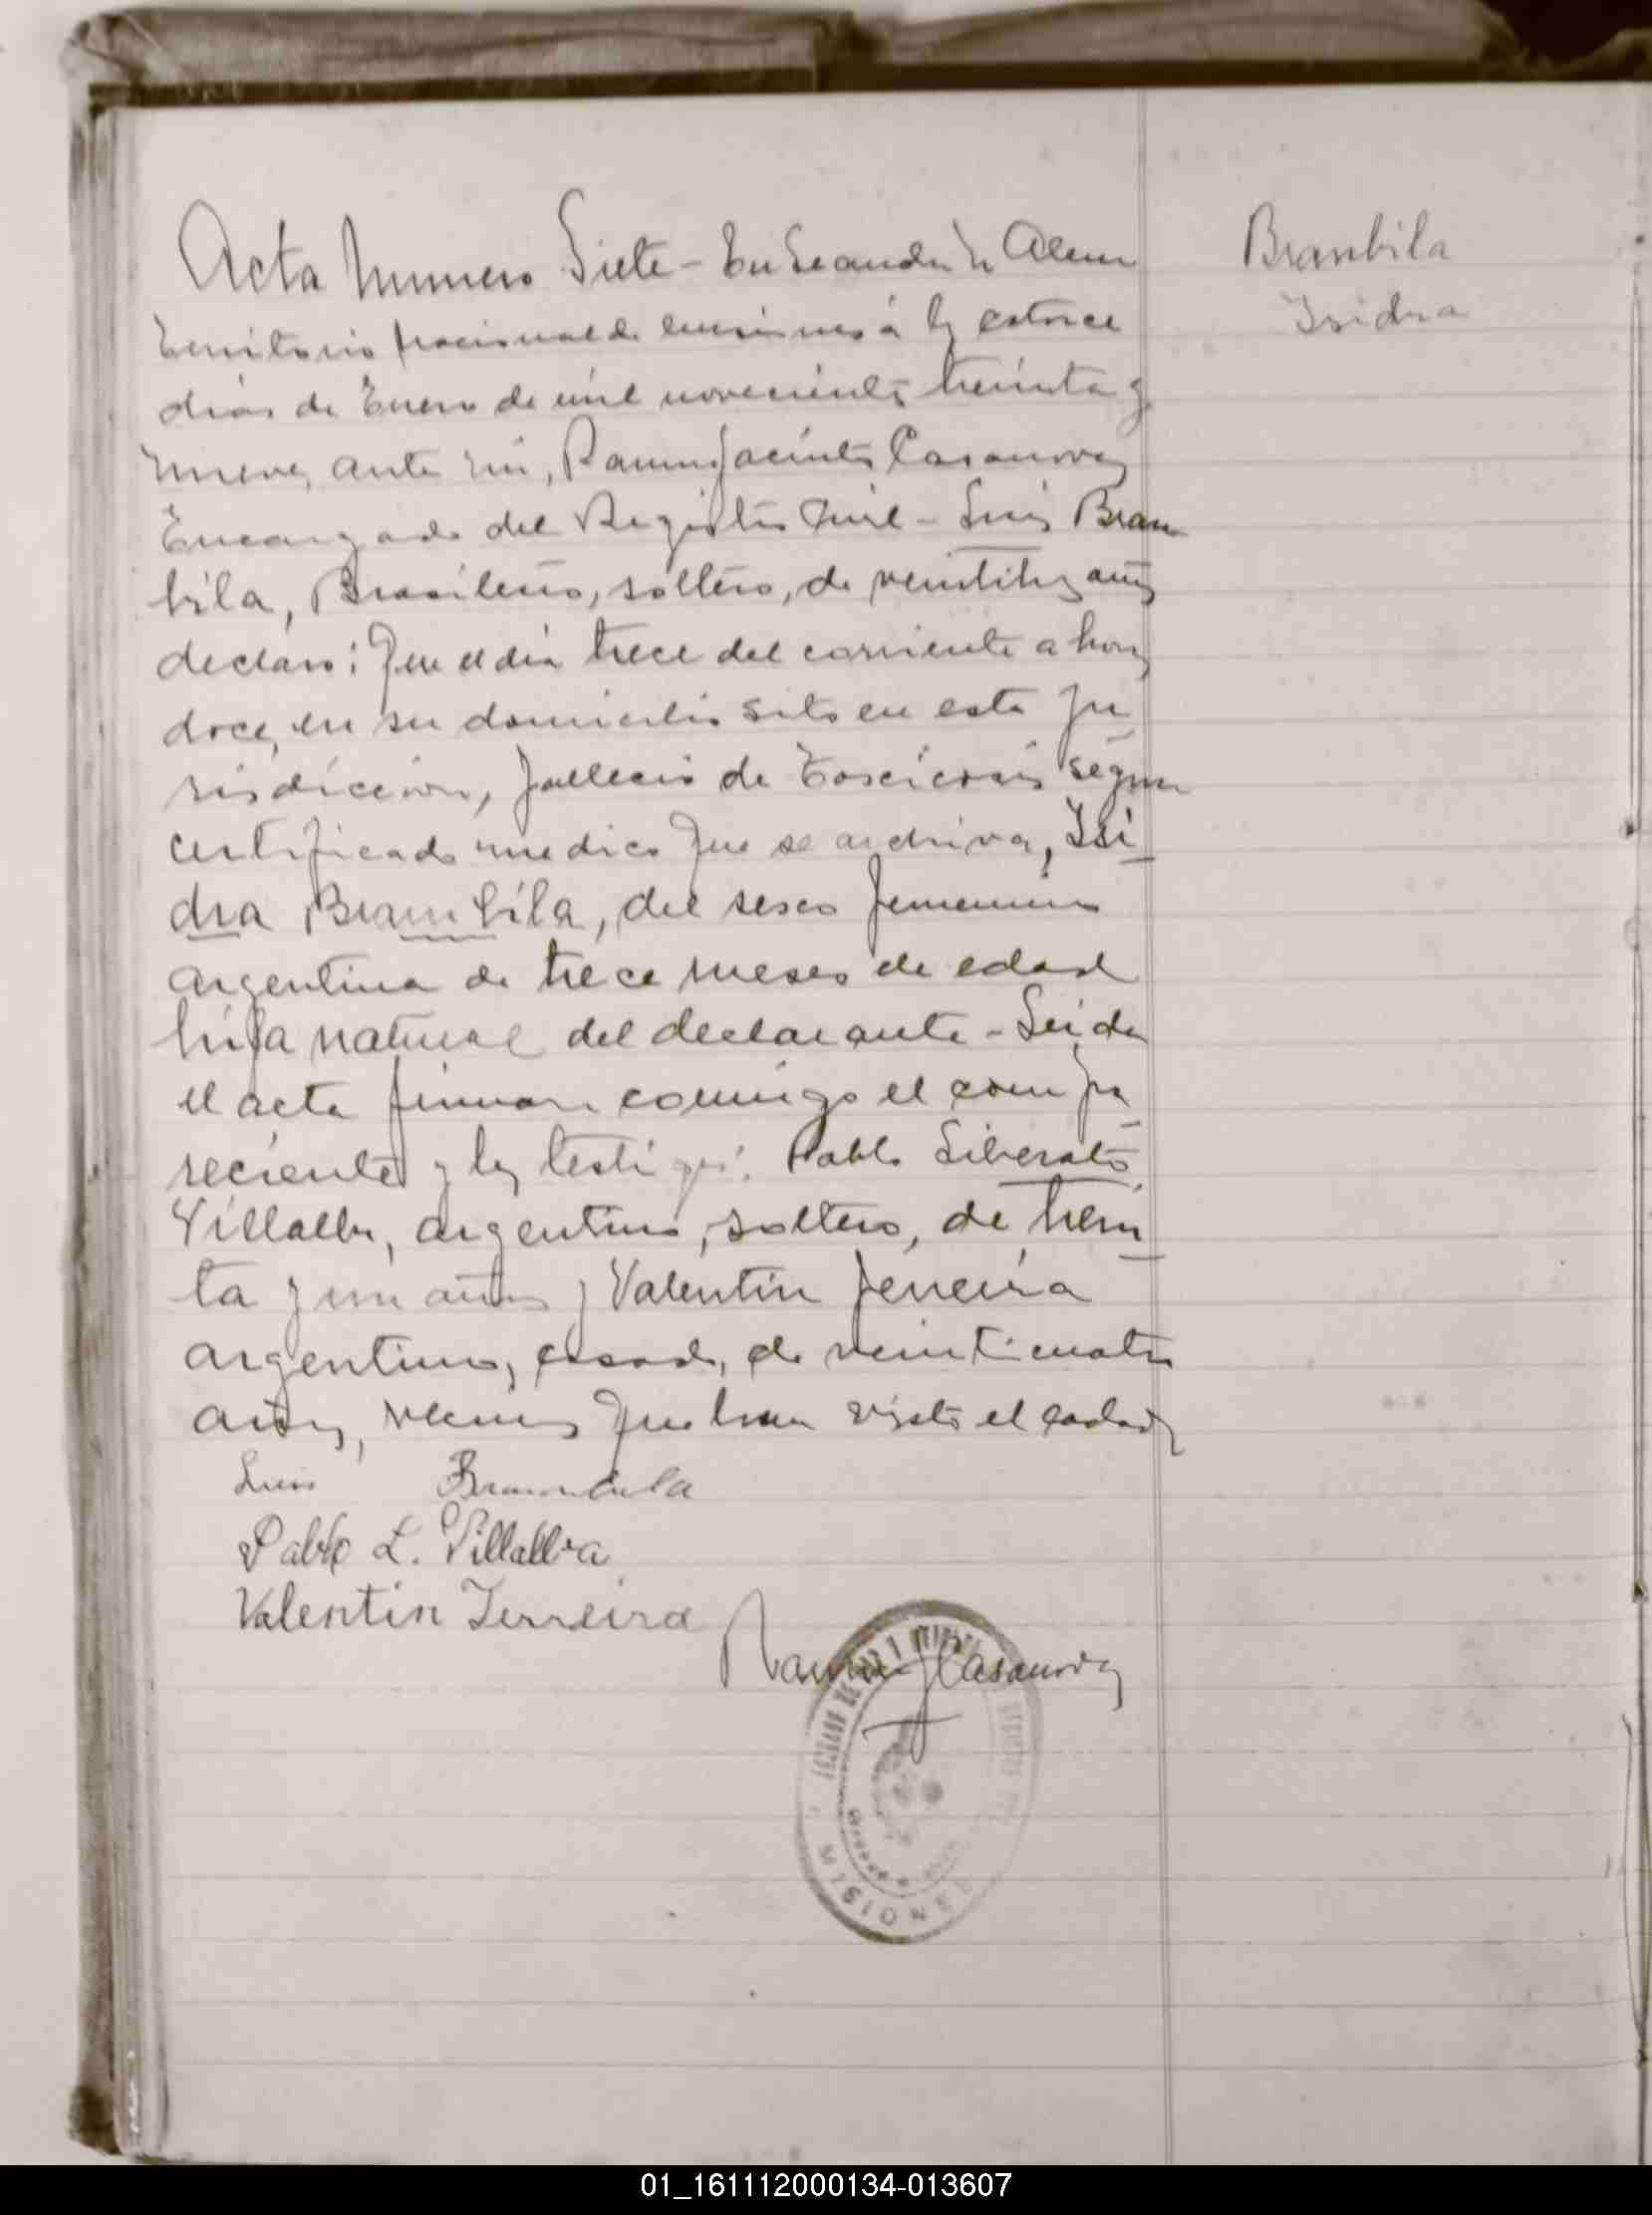 Acta Numero Siete - En Leandro N Alem
Brambila
Isidra
Territorio Nacional de Misiones á los catorce
días de Enero de mil novecientos treinta y
nueve, ante mi, Ramon Jacinto Casanova,
Encargado del Registro Civil - Luis Bram
bila, Brasileño, soltero, de años
declaro: Que el día trece del corriente a horas
doce, en su domicilio sito en esta ju
risdiccion, fallecio de según
certificado medico que se archiva, Isi
dra Brambila, del sexo femenino
argentina de trece meses de edad
hija natural del declarante - Leida
el acta firman conmigo el compa
reciente y los testigos: Pablo Liberato
Villalba, argentino, soltero, de trein
ta y un años y Valentin Ferreira
argentino, casado, de veinticuatro
años, vecinos que han visto el cadaver
Luis Brambila
Pablo L. Villalba
Valentin Ferreira
Ramon J Casanova
MISIONES
01_161112000134-013607